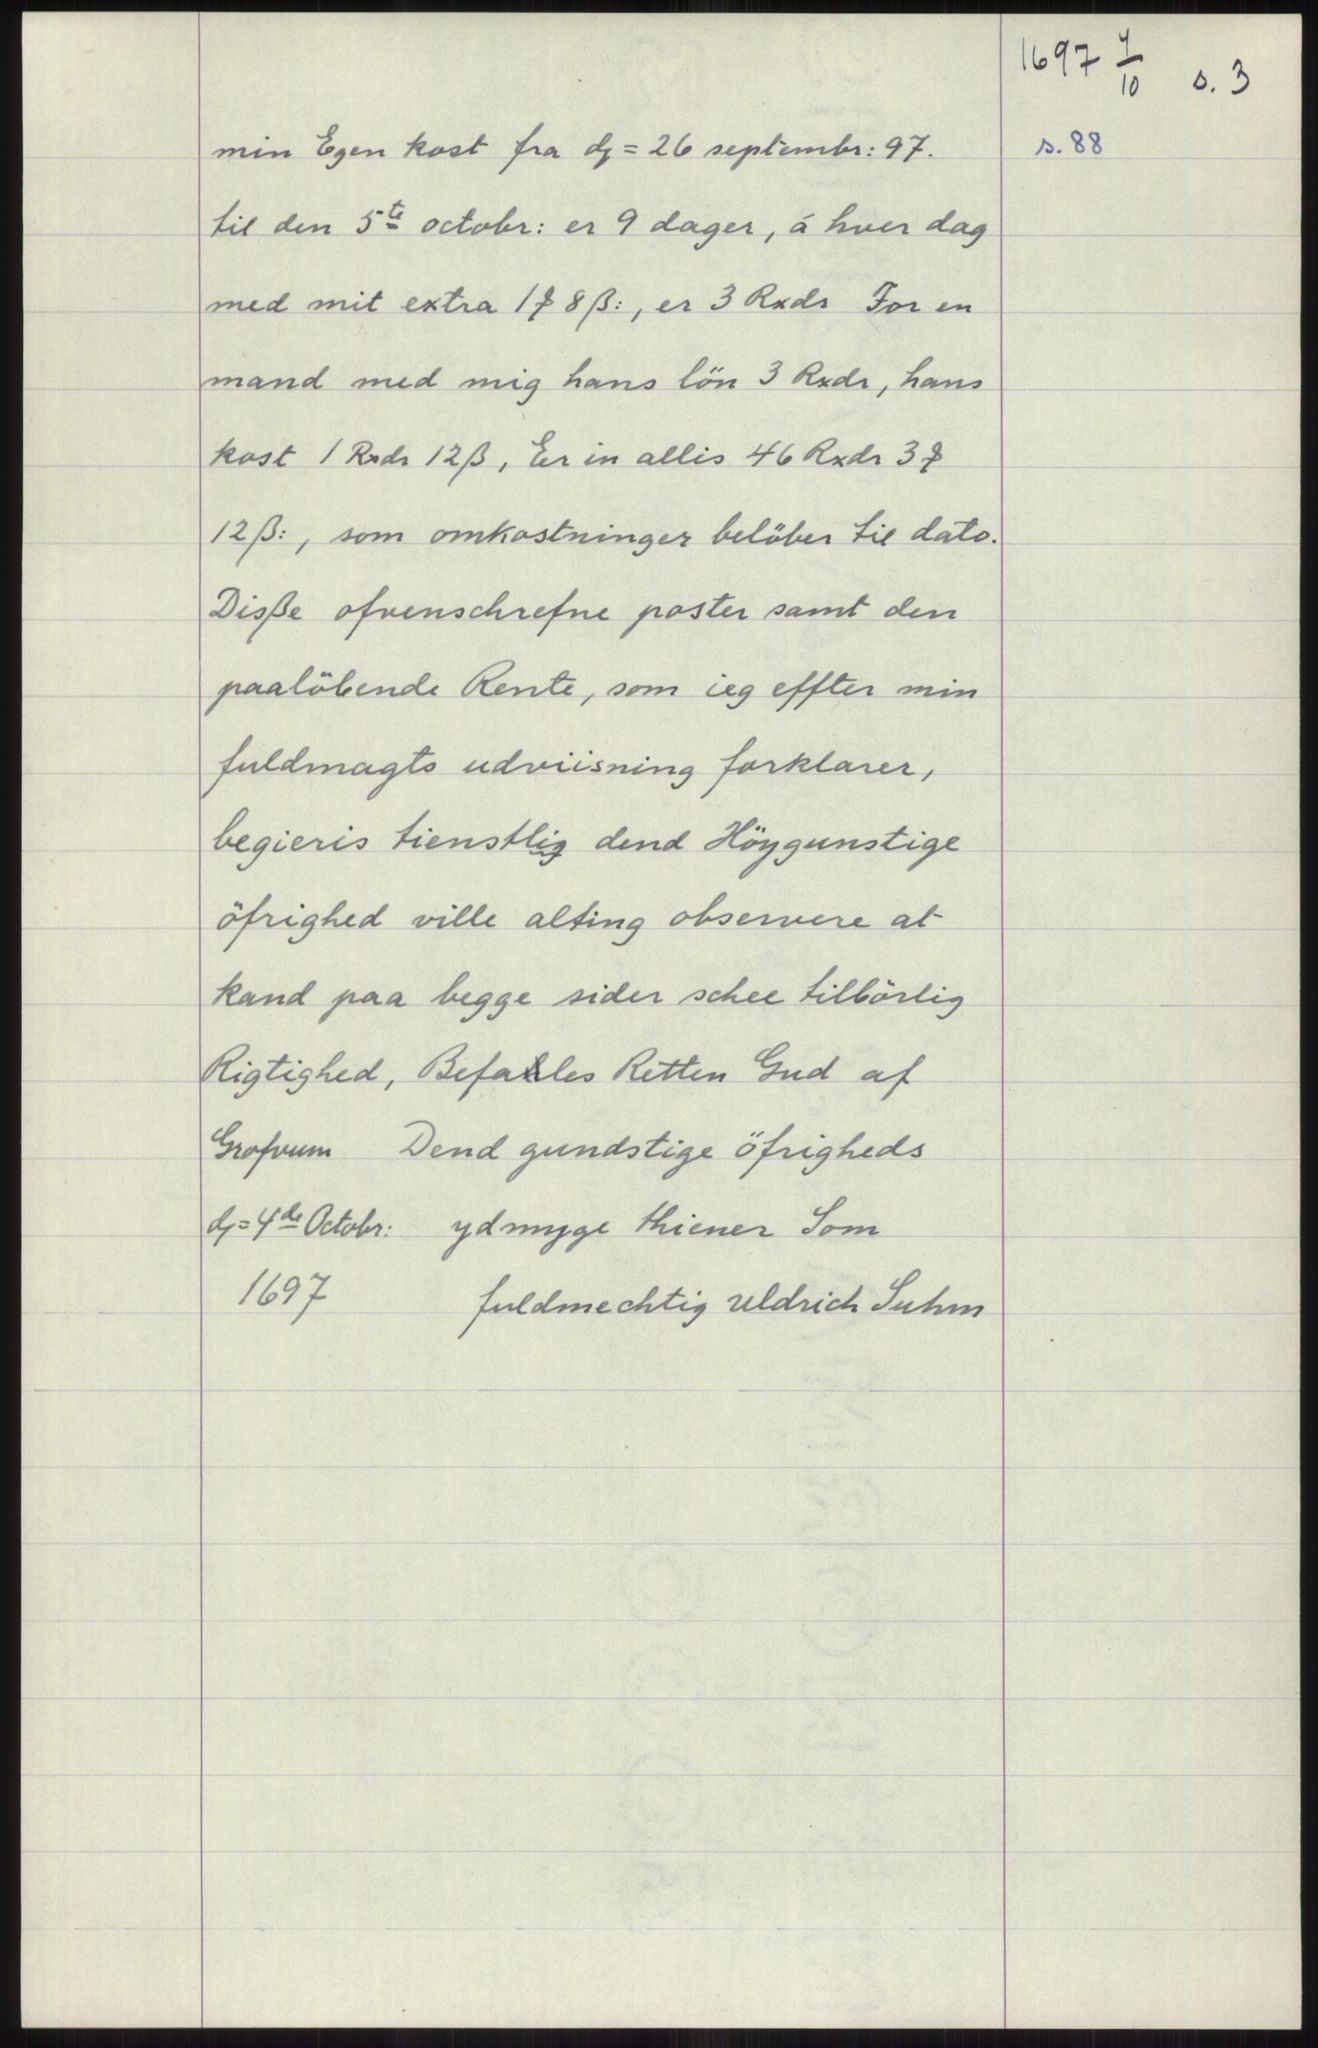 1697 4/10 s. 3
s. 88
min Egen kost fra dȝ = 26 septembr: 97.
til den 5te octobr: er 9 dager, á hver dag
med mit extra 1 ꝑ 8 ß:, er 3 Rxdr For en
mand med mig hans lön 3 Rxdr, hans
kost 1 Rxdr 12 ß, Er in allis 46 Rxdr 3 ꝑ
12 ß:, som omkostninger belöber til dato.
Disße ofvenschrefne poster samt den
paalöbende Rente, som ieg effter min
fuldmagts udviisning forklarer,
begieris tienstlig dend Höygunstige
öfrighed ville alting observere at
kand paa begge sider schee tilbörlig
Rigtighed, Befahles Retten Gud af
Grofvum Dend gundstige öfrigheds
dȝ = 4de Octobr: ydmyge thiener Som
1697 fuldmechtig Uldrich Suhm